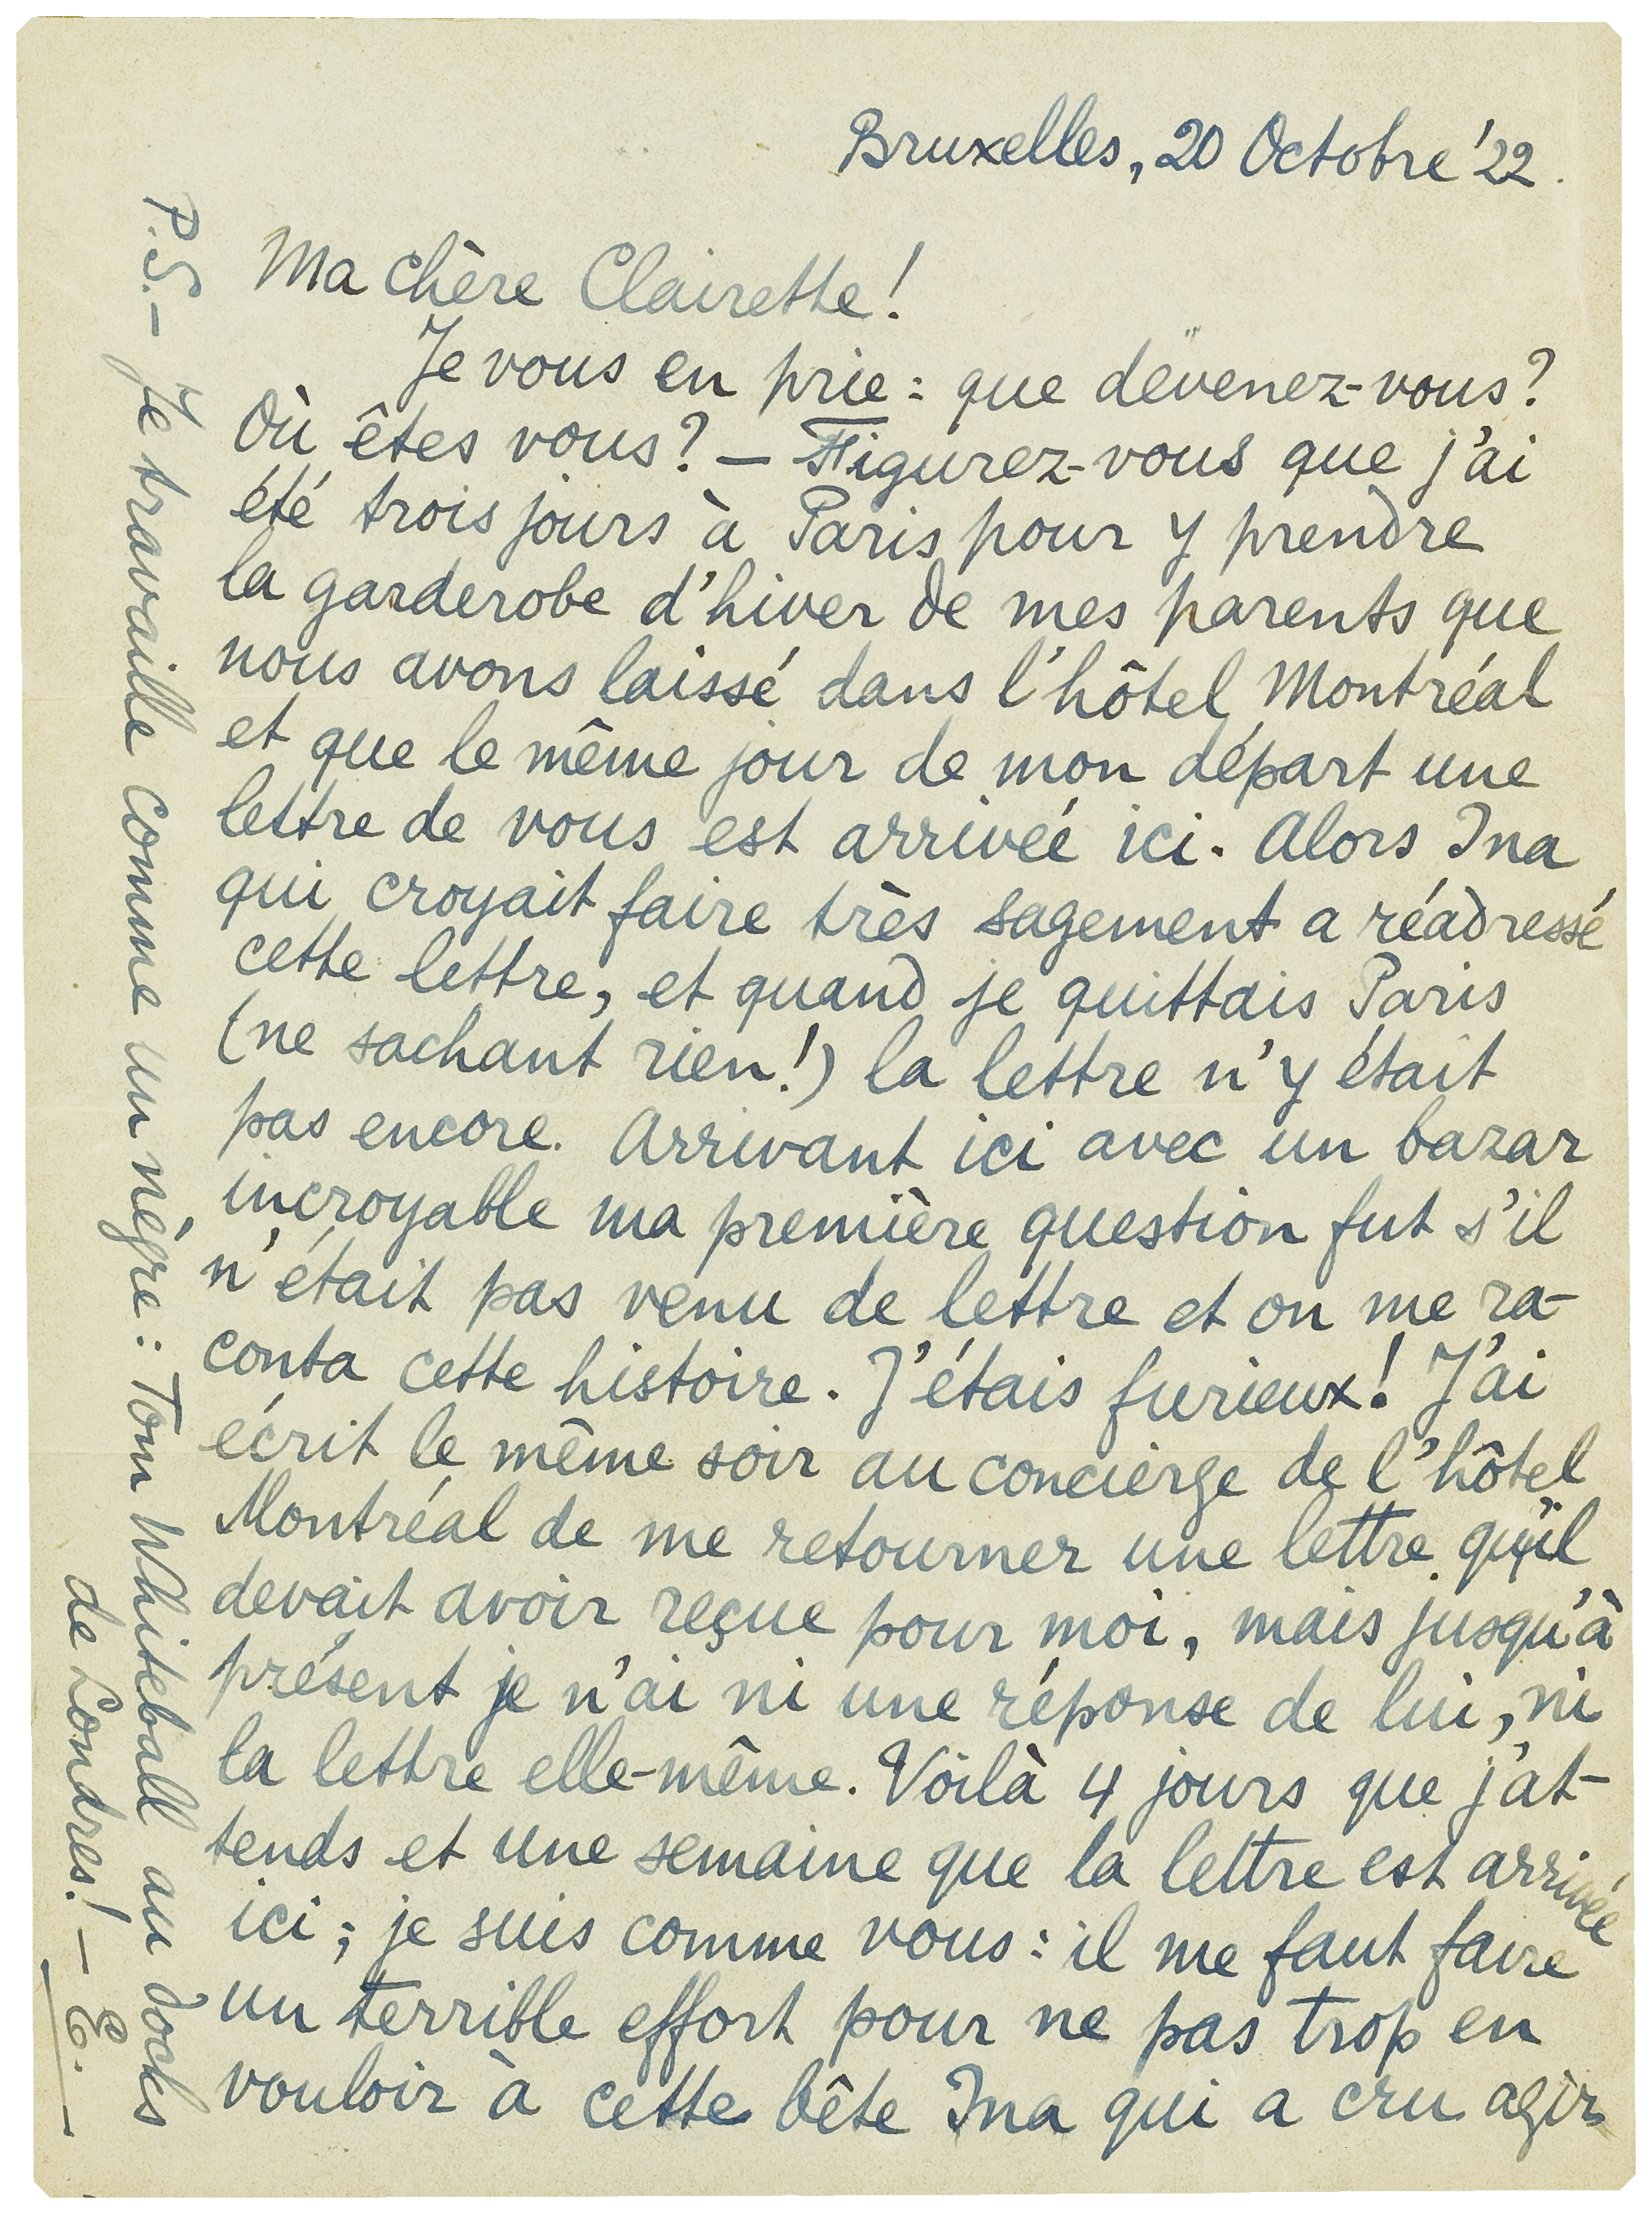 Bruxelles, 20 Octobre '22.
Ma chère Clairette!
Je vous en prie: que devenez-vous?
Où êtes vous? — Figurez-vous que j'ai
été trois jours à Paris pour y prendre
la garderobe d'hiver de mes parents que
nous avons laissé dans l'hôtel Montréal
et que le même jour de mon départ une
lettre de vous est arrivée ici. Alors Ina
qui croyait faire très sagement a réadressé
cette lettre, et quand je quittais Paris
(ne sachant rien!) la lettre n'y était
pas encore. Arrivant ici avec un bazar
incroyable ma première question fut s'il
n'était pas venu de lettre et on me ra-
conta cette histoire. J'étais furieux! J'ai
écrit le même soir au concierge de l'hôtel
Montréal de me retourner une lettre qu'il
devait avoir reçue pour moi, mais jusqu'à
présent je n'ai ni une réponse de lui, ni
la lettre elle-même. Voilà 4 jours que j'at-
tends et une semaine que la lettre est arrivée
ici; je suis comme vous: il me faut faire
un terrible effort pour ne pas trop en
vouloir à cette bête Ina qui a cru agir
P.S. — Je travaille comme un nègre: Tom Whiteball au docks
de Londres! — E.